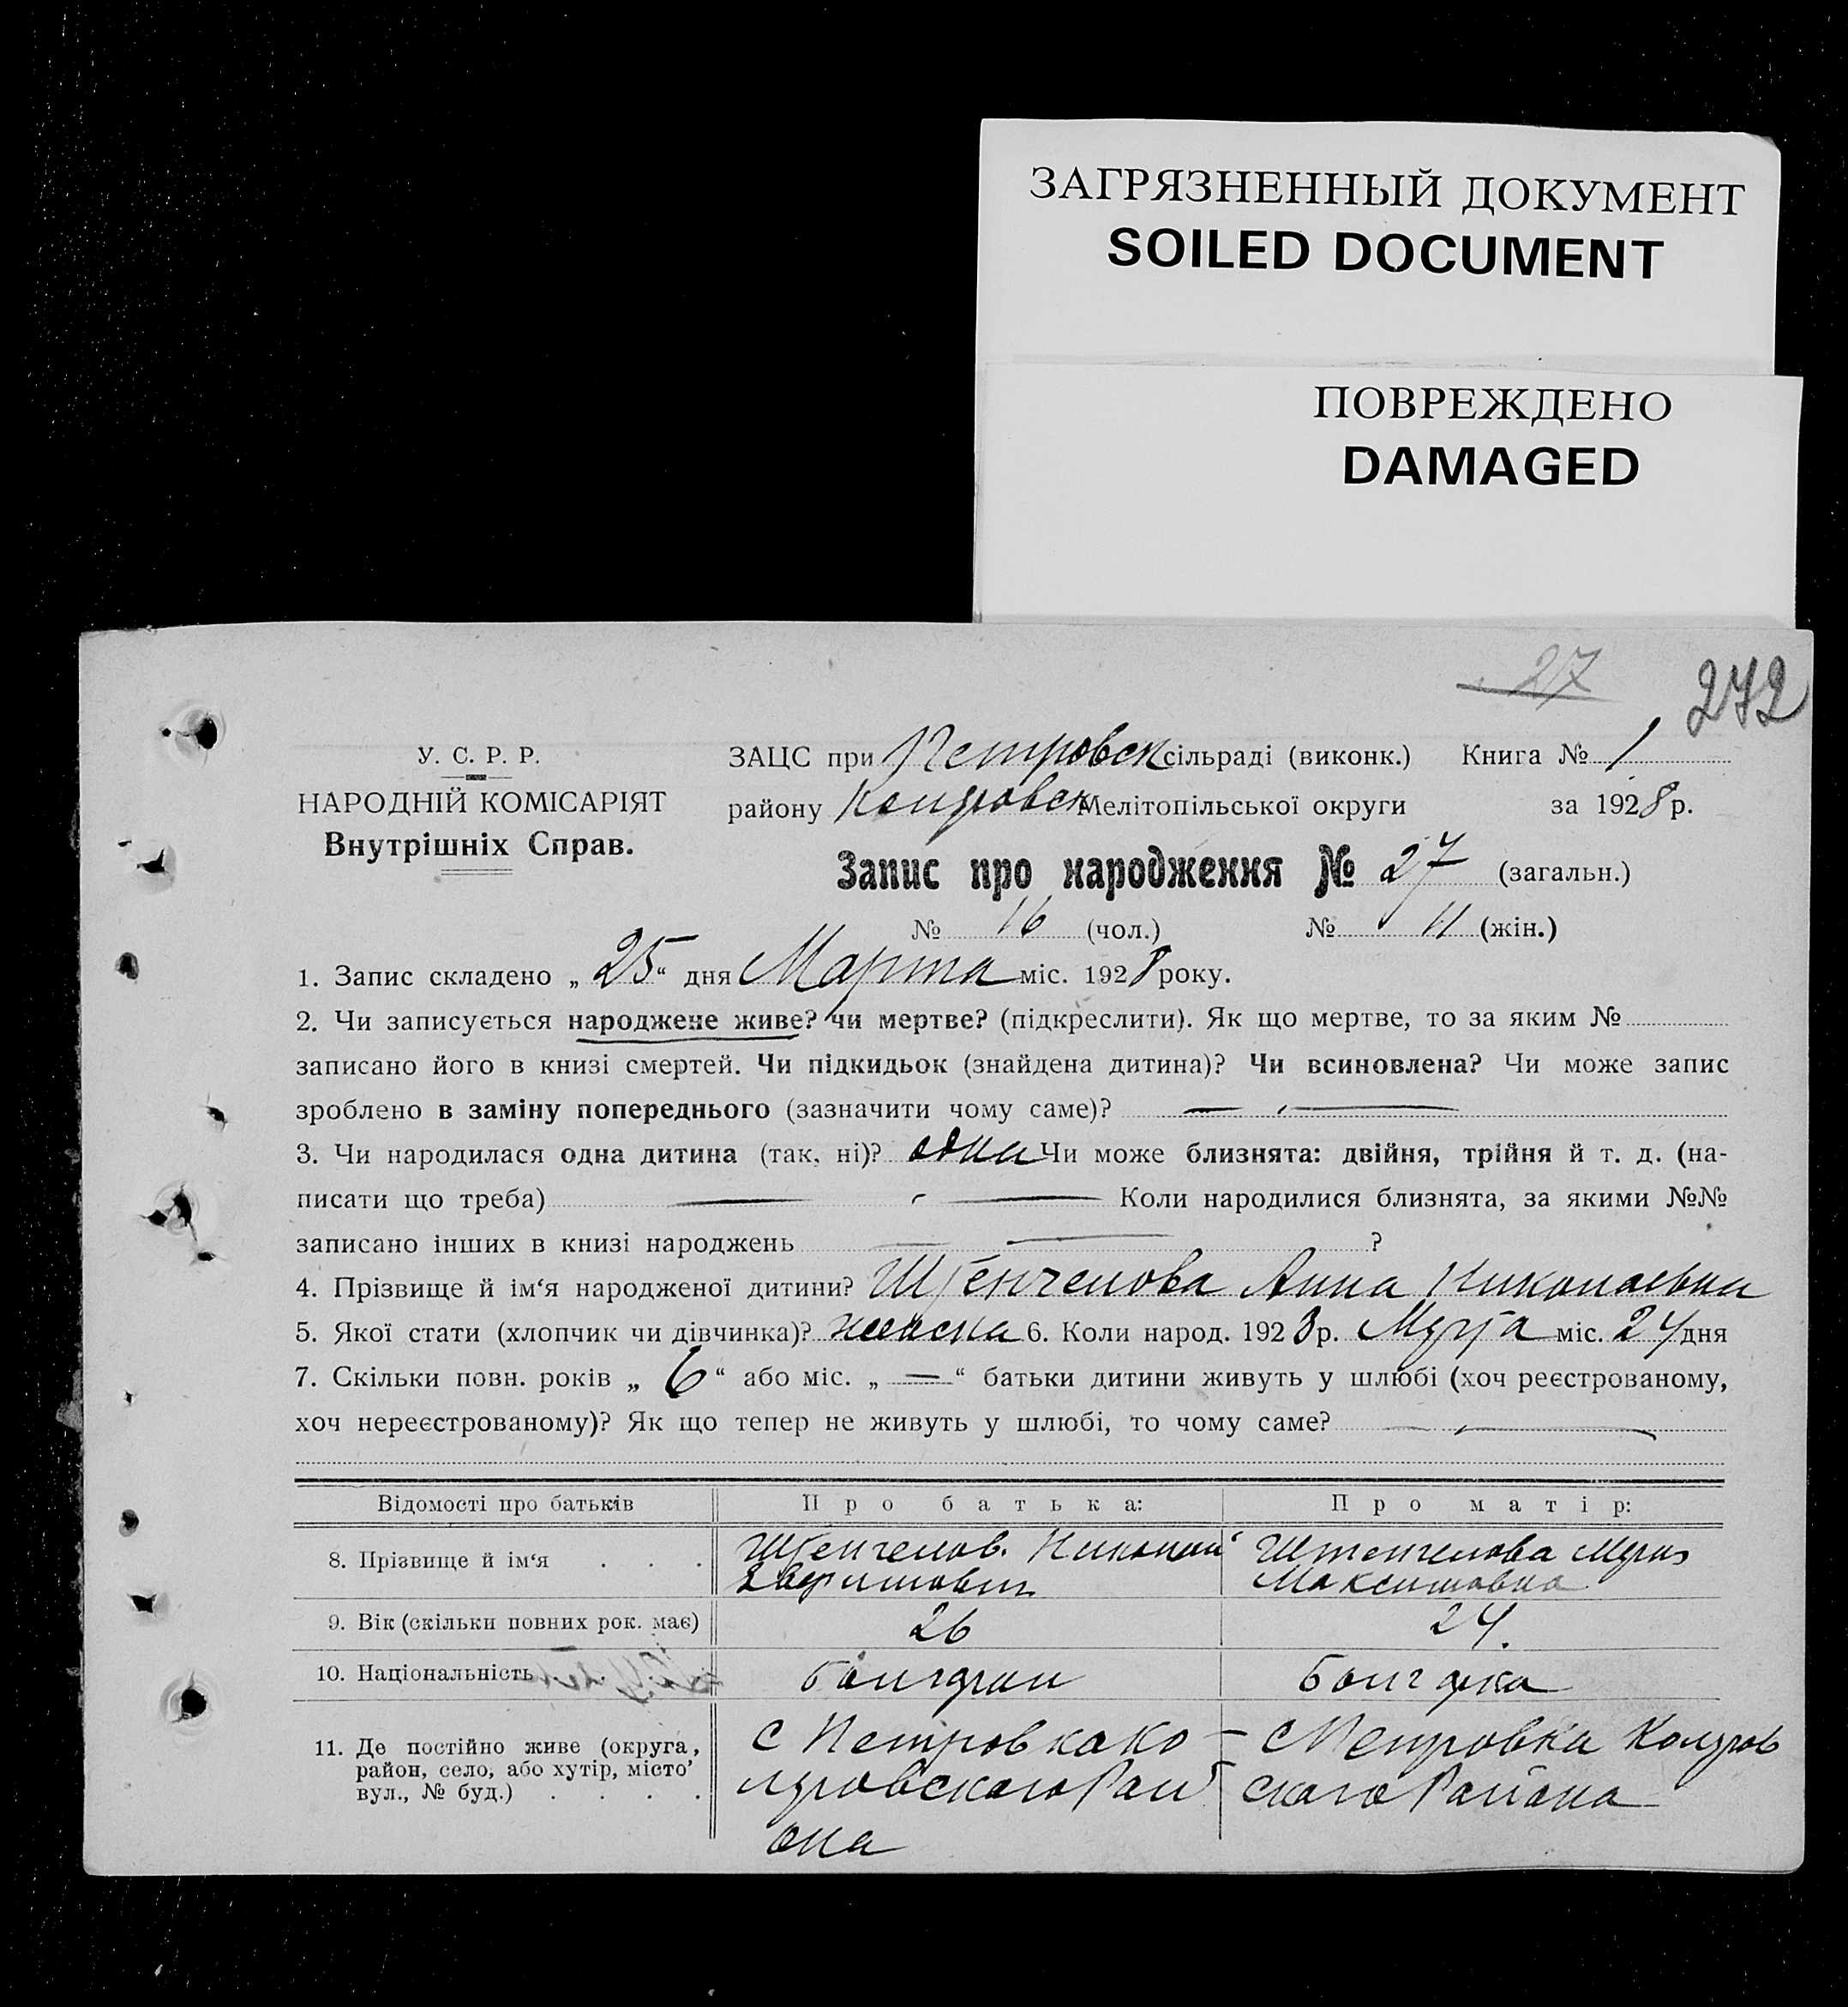 ЗАГРЯЗНЕННЫЙ ДОКУМЕНТ
SOILED DOCUMENT
ПОВРЕЖДЕНО
DAMAGED
27
272
У. С. Р. Р.
НАРОДНІЙ КОМІСАРІЯТ
Внутрішніх Справ.
ЗАЦС при Петровск сільраді (виконк.) Книга № 1
району Мелітопільської округи за 1928 р.
Запис про народження № 27 (загальн.)
№ 16 (чол.) № 11 (жін.)
1. Запис складено „ 25 “ дня Марта міс. 1928 року.
2. Чи записується народжене живе? чи мертве? (підкреслити). Як що мертве, то за яким №
записано його в книзі смертей. Чи підкидьок (знайдена дитина)? Чи всиновлена? Чи може запис
зроблено в заміну попереднього (зазначити чому саме)? —
3. Чи народилася одна дитина (так, ні)? одна Чи може близнята: двійня, трійня й т. д. (на-
писати що треба) — Коли народилися близнята, за якими №№
записано інших в книзі народжень — ?
4. Прізвище й ім‘я народженої дитини? Анна Николаевна
5. Якої стати (хлопчик чи дівчинка)? женска 6. Коли народ. 1928 р. Марта міс. 24 дня
7. Скільки повн. років „ 6 “ або міс. „ — “ батьки дитини живуть у шлюбі (хоч реєстрованому,
хоч нереєстрованому)? Як що тепер не живуть у шлюбі, то чому саме? —
Відомості про батьків Про батька: Про матір:
8. Прізвище й ім‘я . . . Николай Штенчелова Мария
Максимовна
9. Вік (скільки повних рок. має) 26 24.
10. Національність Болгарин Болгарка
11. Де постійно живе (округа, район, село, або хутір, місто’ вул., № буд.) . . . .
с Петровка Ко-
лдровского Рай
она
с Петровка Колдров
ского Района